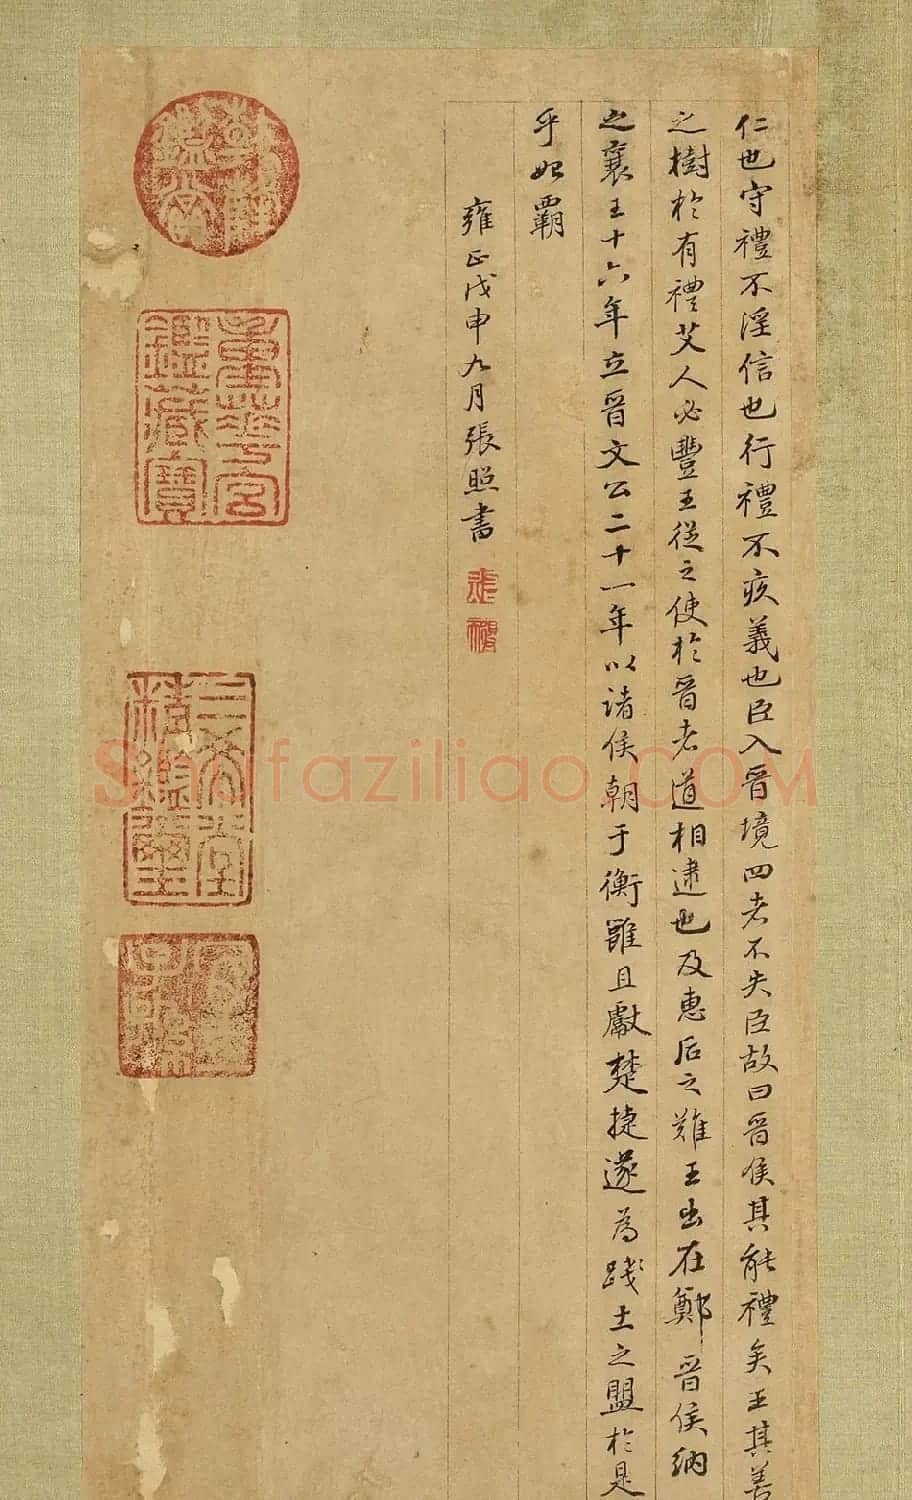 仁也守禮不淫信也行禮不疚義也臣入晉境四者不失臣故曰晉侯其能禮矣王其善
之樹於有禮艾人必豐王從之使於晉者道相逮也及惠后之難王出在鄭晉侯納
之襄王十六年立晉文公二十一年以諸侯朝于衡雖且獻楚捷遂為踐土之盟於是
乎始霸
雍正戊申九月張照書
張照
乾隆鑑賞
重華宮鑑藏寶
三希堂精鑑璽
Shufaziliao.COM